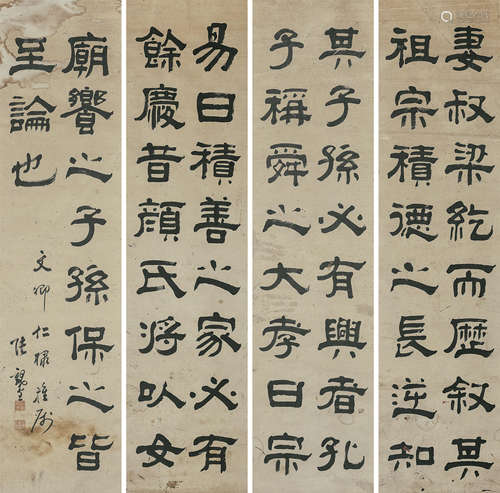 妻叔梁紇而歷叙其
祖宗積德之長逆知
其子孫必有興者孔
子稱舜之大孝曰宗
易曰積善之家必有
餘慶昔顏氏將以女
廟饗之子孫保之皆
至論也
文卿仁棣雅屬